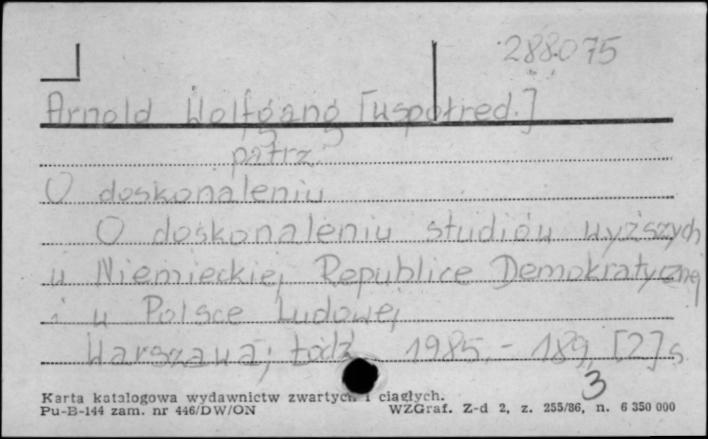 288075
Arnold Wolfgang [uspółred.]
patrz
O doskonaleniu
O doskonaleniu studiów wyższych
w Niemieckiej Republice Demokratycznej
i w Polsce Ludowej
Warszawa; Łódź 1985. - 189, [2] s.
3
Karta katalogowa wydawnictw zwartych i ciągłych.
Pu-B-144 zam. nr 446/DW/ON WZGraf. Z-d 2, z. 255/86, n. 6 350 000